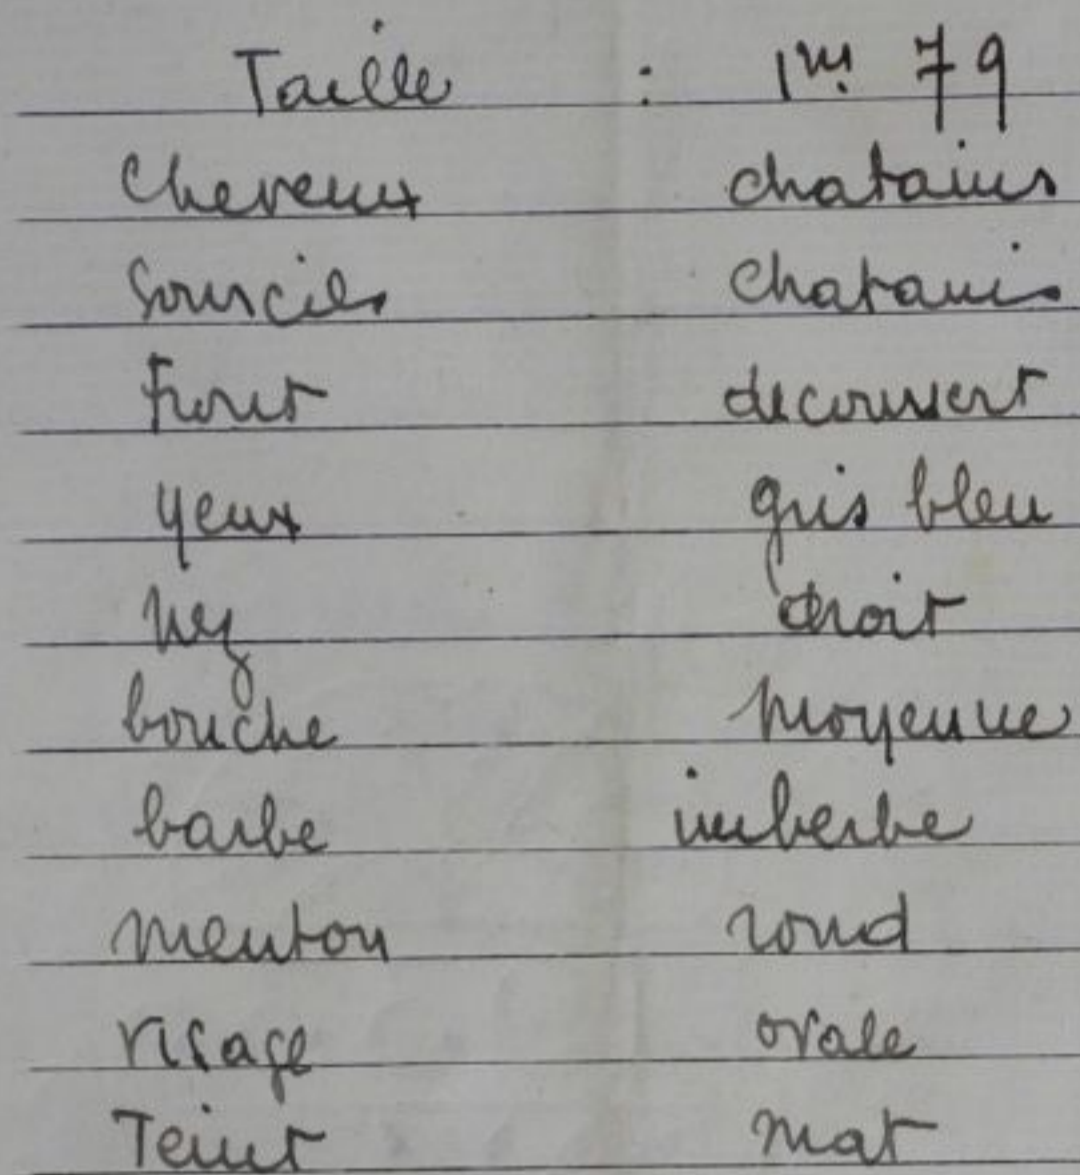 Taille : 1m. 79
Cheveux chatains
Sourcils Chatains
Front decouvert
yeux gris bleu
Nez droit
bouche moyenne
barbe imberbe
menton rond
visage ovale
Teint mat